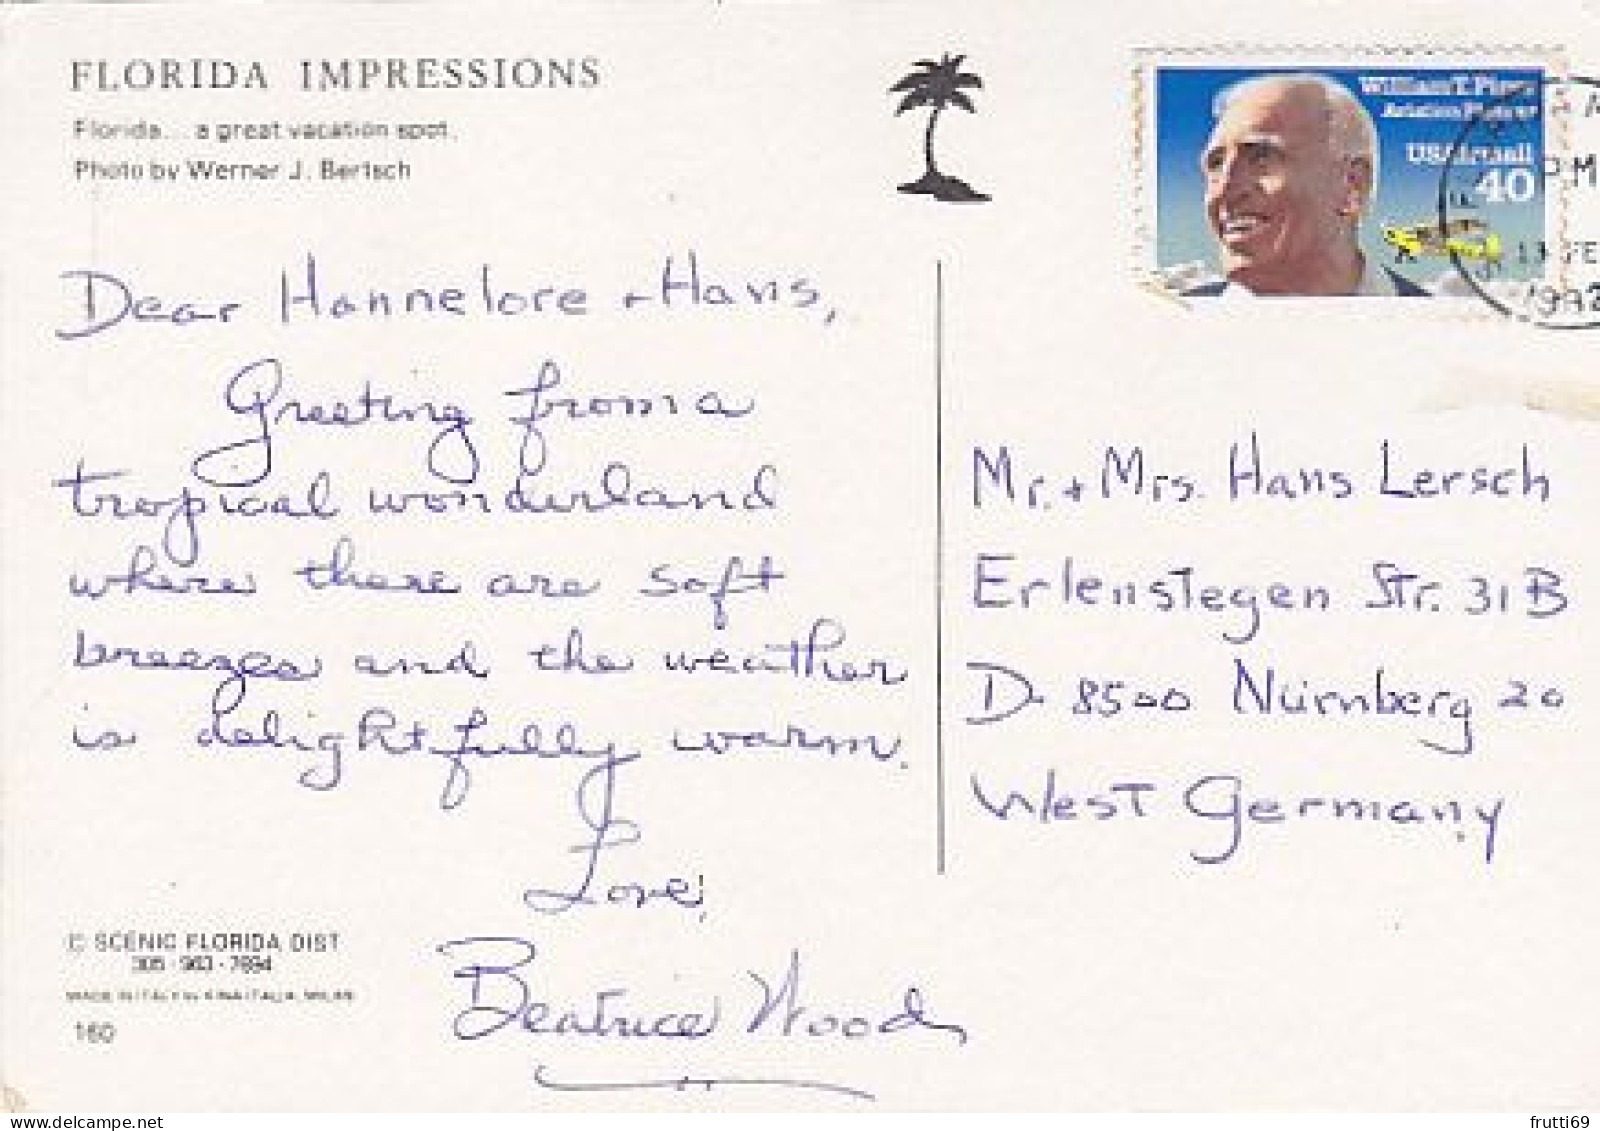 FLORIDA IMPRESSIONS
Florida... a great vacation spot.
Photo by Werner J. Bertsch
William T. Piper
Aviation Pioneer
USAirmail
40
PM
13 FE
1992
Dear Hannelore + Hans,
Greeting from a
tropical wonderland
where there are soft
breezes and the weather
is delightfully warm.
Love,
Beatrice Wood
Mr. + Mrs. Hans Lersch
Erlenstegen Str. 31 B
D-8500 Nürnberg 20
West Germany
© SCENIC FLORIDA DIST
305 - 963 - 7894
MADE IN ITALY by KINA ITALIA, MILAN
160
www.delcampe.net
frutti69